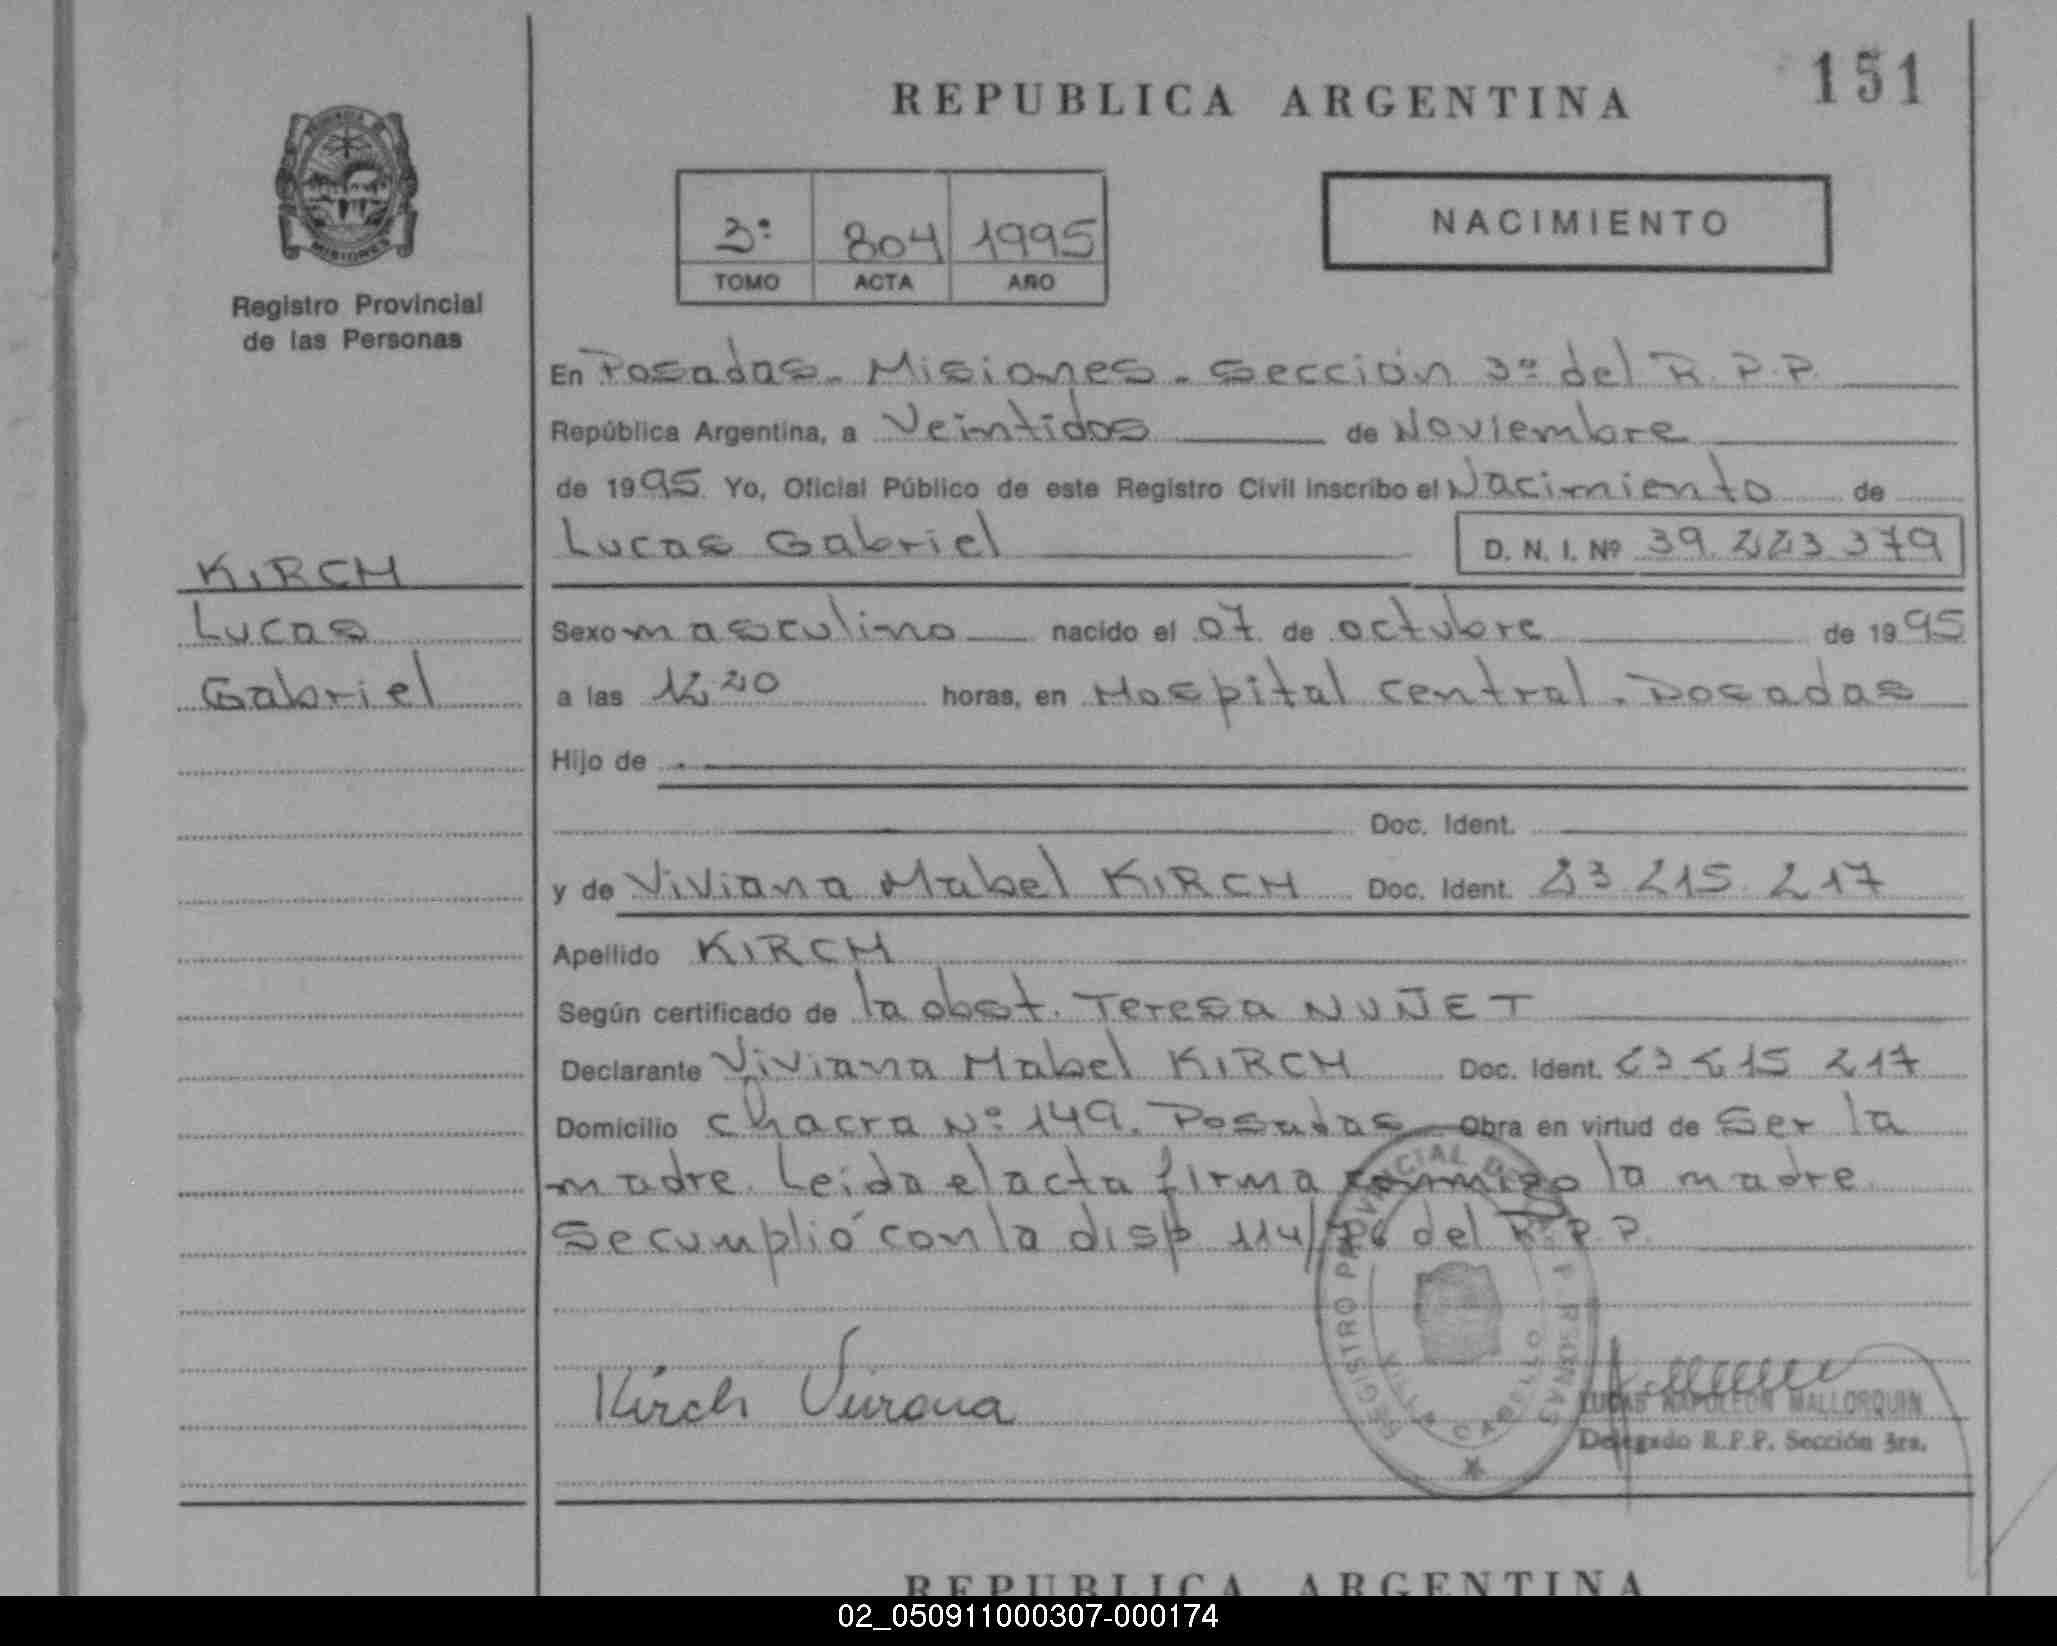 151
REPUBLICA ARGENTINA
3º 804 1995
TOMO ACTA AÑO
NACIMIENTO
MISIONES
Registro Provincial
de las Personas
KIRCH
Lucas
Gabriel
En Posadas - Misiones - Sección 3ª del R.P.P.
República Argentina, a Veintidos de Noviembre
de 1995 Yo, Oficial Público de este Registro Civil inscribo el Nacimiento de
Lucas Gabriel D. N. I. Nº 39.223.379
Sexo masculino nacido el 07 de octubre de 1995
a las 12 20 horas, en Hospital central - Posadas
Hijo de
Doc. Ident.
y de Viviana Mabel KIRCH Doc. Ident. 23 215 217
Apellido KIRCH
Según certificado de la obst. Teresa NUÑET
Declarante Viviana Mabel KIRCH Doc. Ident. 23 215 217
Domicilio Chacra Nº 149. Posadas Obra en virtud de ser la
madre. Leida el acta firma conmigo la madre
Se cumplió con la disp 114/76 del R.P.P.
REGISTRO PROVINCIAL DE PERSONAS
VILLA CABELLO
Kirch Viviana
LUCAS NAPOLEON MALLORQUIN
Delegado R.P.P. Sección 3ra.
REPUBLICA ARGENTINA
02_050911000307-000174